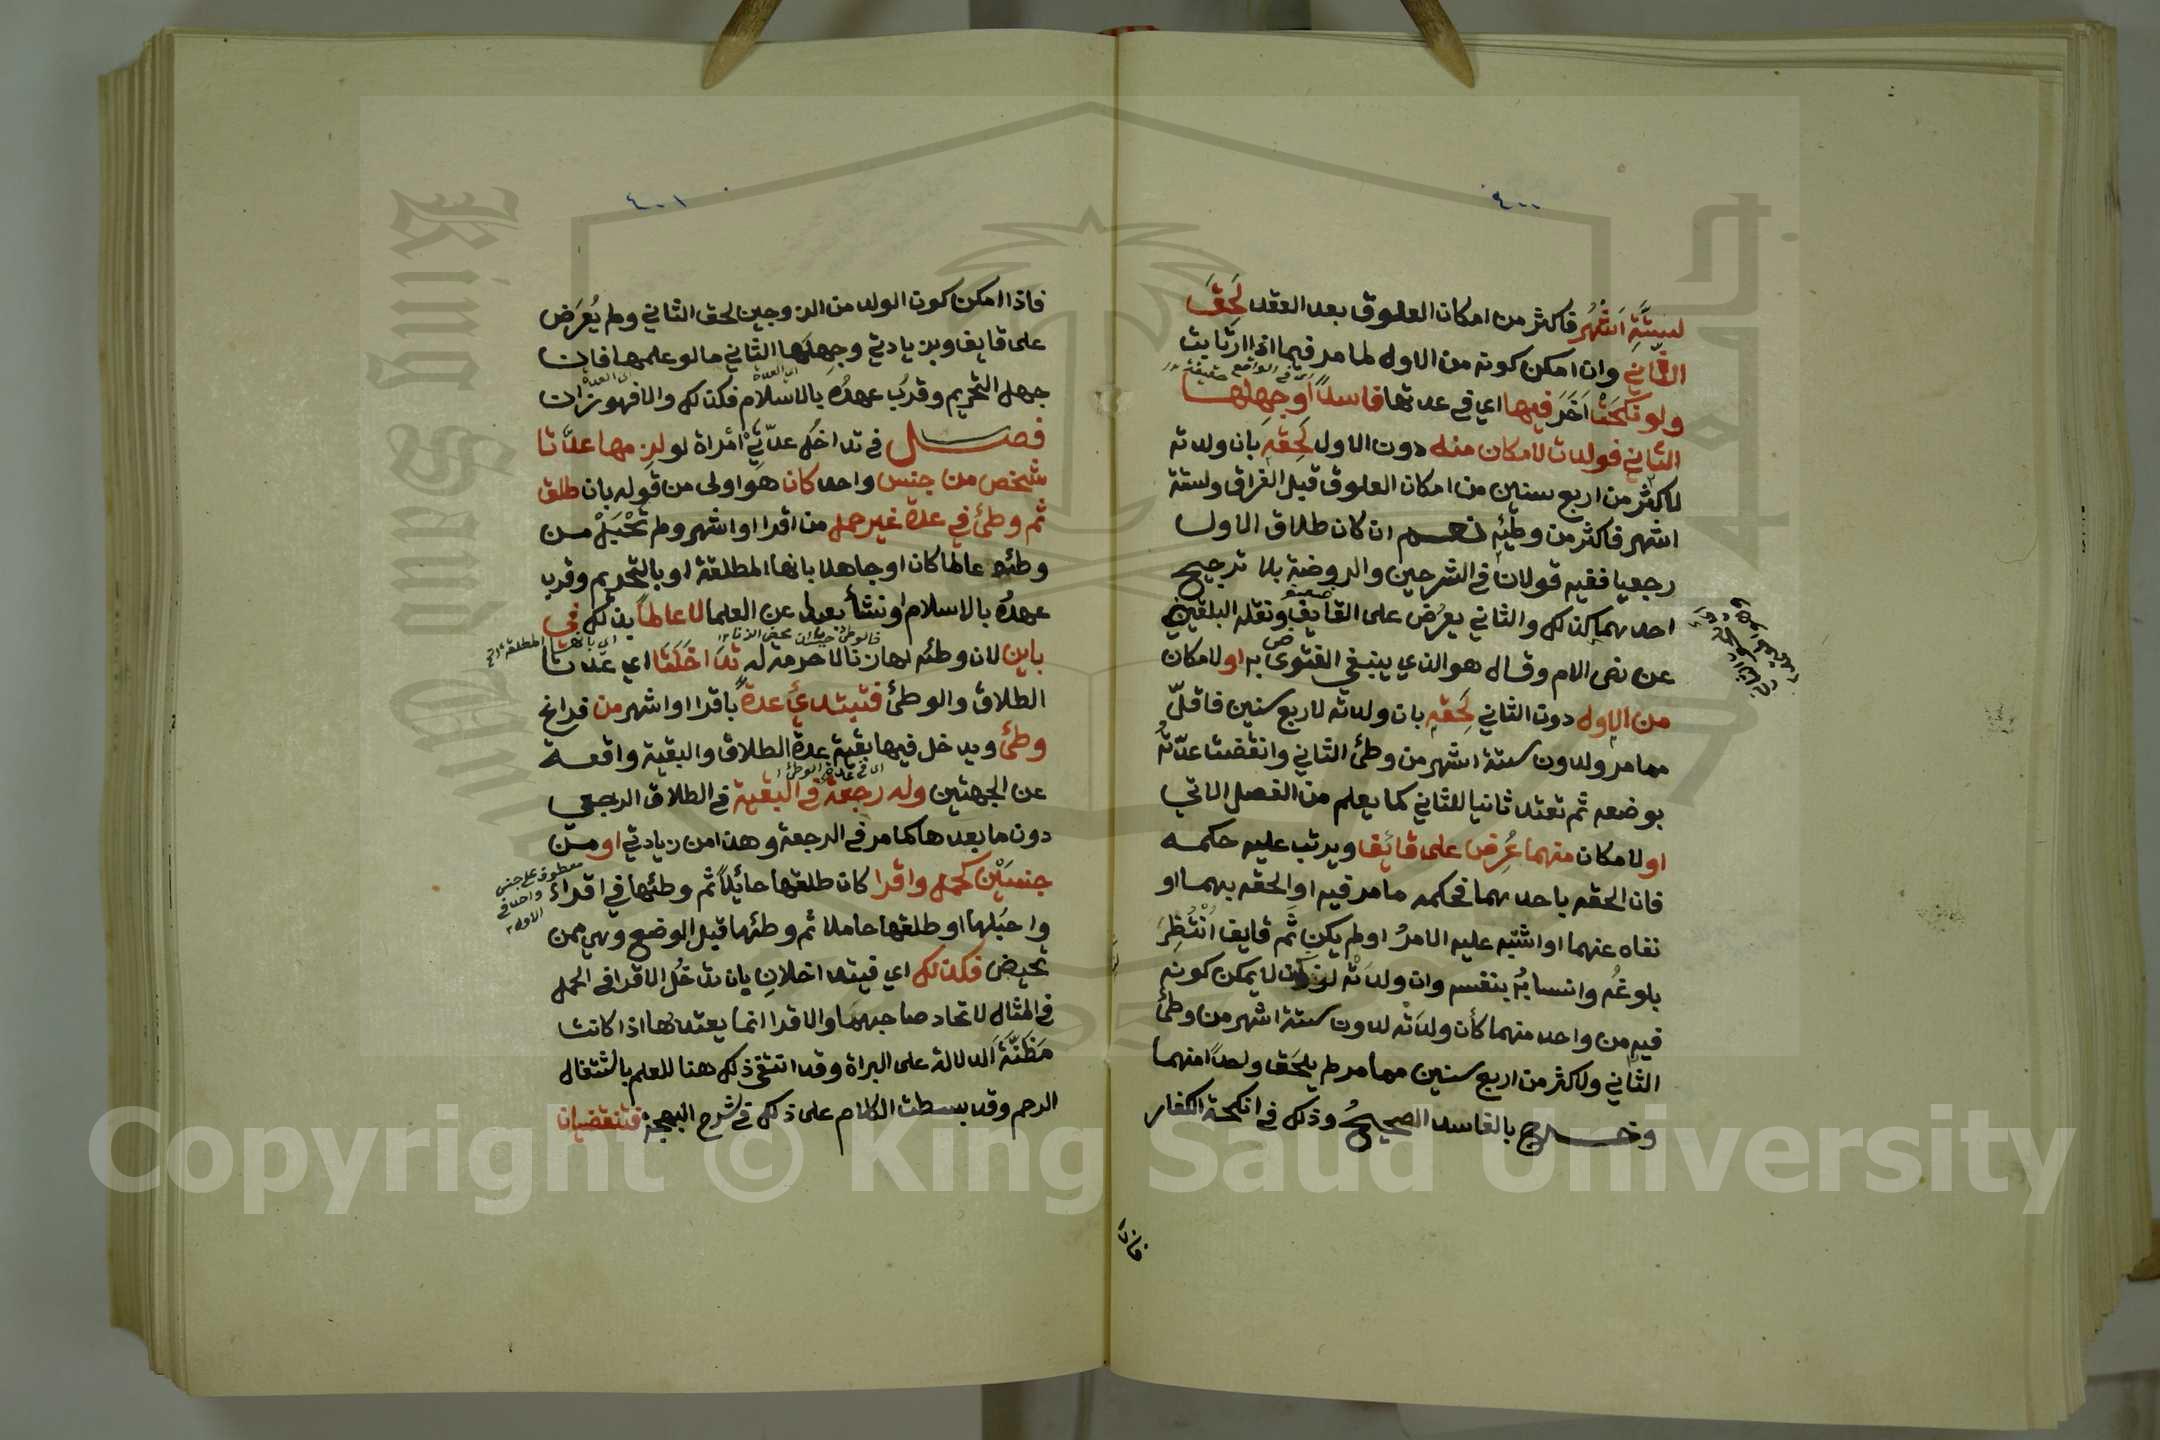 ٤٠٠
لستة اشهر فاكثر من امكان العلوق بعد العقد لَحِقَ
الثاني وان امكن كونه من الاول لما مر فيما اذا ارتابت
ولو نكحت آخَرَ فيها اي في عدتها فاسدًا وجهلها
الثاني فولدت لامكان منه دون الاول لَحِقَه بان ولدته
لاكثر من اربع سنين من امكان العلوق قبل الفراق ولستة
اشهر فاكثر من وطئِه نعم ان كان طلاق الاول
رجعيا ففيه قولان في الشرحين والروضة بلا ترجيح
احدهما كذلك والثاني يعرض على القايف ونقله البلقيني
عن نص الام وقال هو الذي ينبغي الفتوى به او لامكان
من الاول دون الثاني لَحِقَه بان ولدته لاربع سنين فاقلّ
مما مر ولدون ستة اشهر من وطئ الثاني وانقضت عدّتُه
بوضعه ثم تعتد ثانيا للثاني كما يعلم من الفصل الاتي
او لامكان منهما عُرِض على قائف ويرتب عليه حكمه
فان الحقه باحدهما فحكمه ما مر فيه او الحقه بهما او
نفاه عنهما او اشتبه عليه الامرُ او لم يكن ثَم قايف اُنْتُظِرَ
بلوغُه وانتسابُه بنفسه وان ولدَتْه لزمن لا يمكن كونه
فيه من واحد منهما كأن ولدَته لدون ستة اشهر من وطئ
الثاني ولاكثر من اربع سنين مما مر لم يلحَق ولحدًا منهما
وخرج بالفاسد الصحيحُ وذلك في انكحة الكفار
فاذا
٤٠١
فاذا امكن كون الولد من الزوجين لحق الثاني ولم يُعرَض
على قايف وبزيادتي وجهلَها الثاني ما لو علمها فان
جهل التحريم وقرُب عهدُه بالاسلام فكذلك والا فهو زان
فصل في تداخُل عدّتَيْ امْراة لو لزمها عدّتا
شخص من جنس واحد كان هو اولى من قوله بان طلق
ثم وطئ في عدة غير حمل من اقرا او اشهر ولم تحْبَلْ من
وطئه عالما كان او جاهلا بانها المطلقة او بالتحريم وقرب
عهدُه بالاسلام او نشأ بعيدا عن العلما لا عالمًا بذلك في
باين لان وطئه لها زنا لا حرمة له تداخَلَتا اي عدتا
الطلاق والوطئ فتبتدئُ عدةً باقرا او اشهر من فراغ
وطئ ويدخل فيها بقية عدة الطلاق والبقية واقعة
عن الجهتين وله رجعة في البقية في الطلاق الرجعي
دون ما بعدها كما مر في الرجعة وهذا من زيادتي او من
جنسَيْن كحمل واقرا كان طلقها حائلًا ثم وطئها في اقراء
واحبَلها او طلقها حاملا ثم وطئها قبل الوضع وهي ممن
تحيض فكذلك اي فيتداخلانِ بان تدخُل الاقرا في الحمل
في المثال لاتحاد صاحبهما والاقرا انما يعتد بها اذا كانت
مَظِنَّةَ الدلالة على البراة وقد انتفى ذلك هنا للعلم باشتغال
الرحم وقد بسطت الكلام على ذلك في شرح البهجة فتنقضيان
معطوف على جنس
واحد في
الاول
Copyright © King Saud University
King Saud University
1957